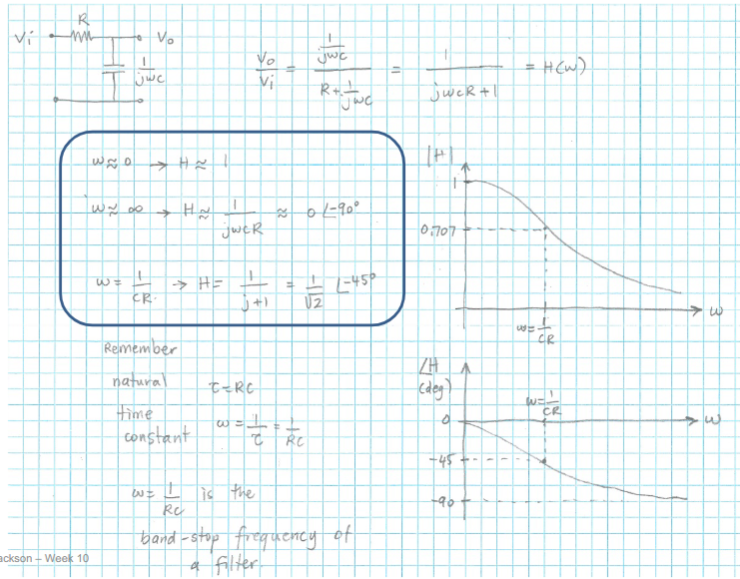 R
Vi
Vo
1/jwc
Vo/Vi = (1/jwc)/(R+1/jwc) = 1/(jwcR+1) = H(w)
w≈0 → H≈ 1
w≈∞ → H≈ 1/jwcR ≈ 0∠-90°
w= 1/CR. → H= 1/(j+1) = 1/√2 ∠-45°
|H|
1
0.707
w=1/CR
w
Remember
natural τ=RC
time
constant w = 1/τ = 1/RC
w= 1/RC is the
band-stop frequency of
a filter
∠H
(deg)
w=1/CR
0
w
-45
-90
ackson – Week 10